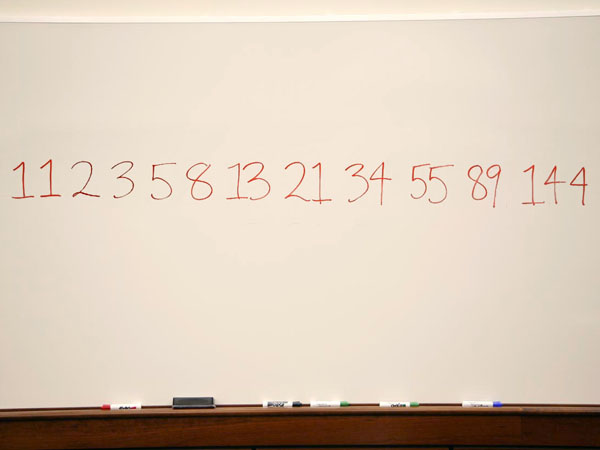 1 1 2 3 5 8 13 21 34 55 89 144
EXPO